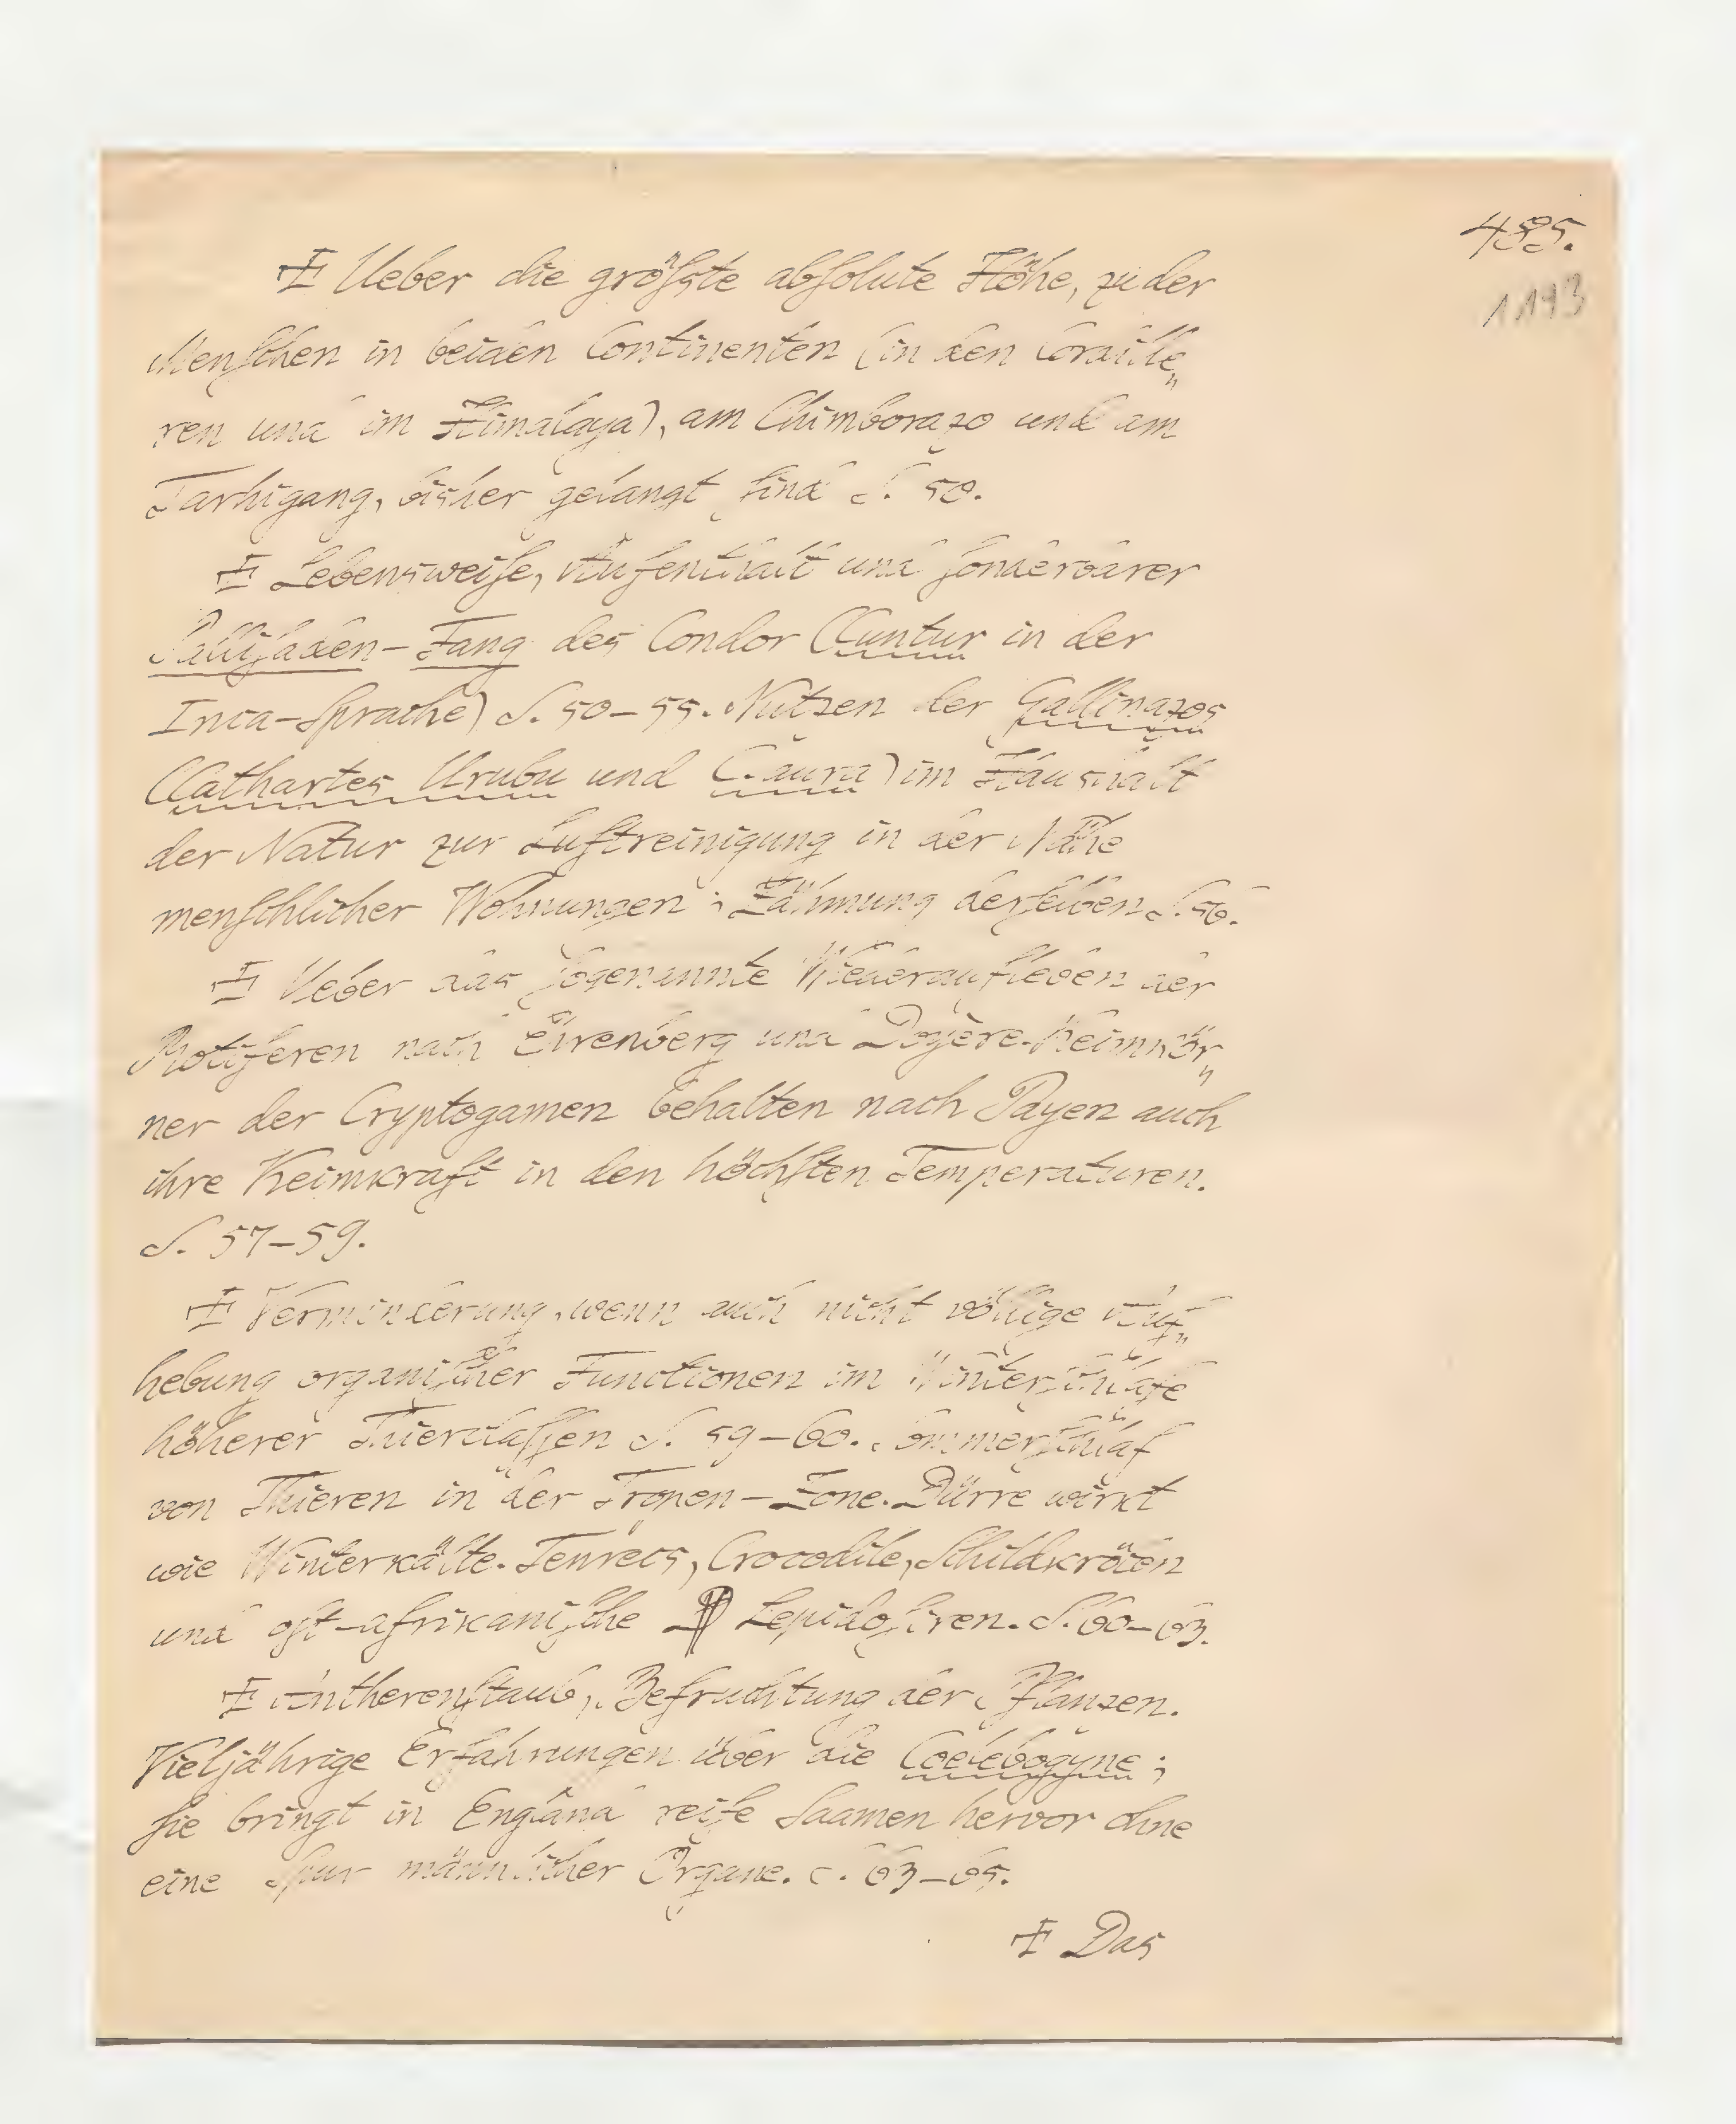 485.
1193
Ueber die größste absolute Höhe, zu der
Menschen in beiden Continenten (in den Cordille„
ren und im Himalaya), am Chimborazo und am
Tarhigang, bisher gelangt sind S. 50.
Lebensweise, Aufenthalt und sonderbarer
Pallisaden-Fang des Condor (Cuntur in der
Inca-Sprache) S. 50–55. Nutzen der Gallinazos
(Cathartes Urubu und C. aura) im Haushalt
der Natur zur Luftreinigung in der Nähe
menschlicher Wohnungen; Zähmung derselben S. 56.
Ueber das sogenannte Wiederaufleben der
Rotiferen nach Ehrenberg und Doyère. Keimkör„
ner der Cryptogamen behalten nach Payen auch
ihre Keimkraft in den höchsten Temperaturen.
S. 57–59.
Verminderung, wenn auch nicht völlige Auf„
hebung organischer Functionen im Winterschlafe
höherer Thierclassen S. 59–60. Sommerschlaf
von Thieren in der Tropen-Zone. Dürre wirkt
wie Winterkälte. Tenrecs, Crocodile, Schildkröten
und ost-afrikanische Lepidosiren. S. 60–63.
Antherenstaub, Befruchtung der Pflanzen.
Vieljährige Erfahrungen über die Coelebogyne;
sie bringt in England reife Saamen hervor ohne
eine Spur männlicher Organe. S. 63–65.
Das